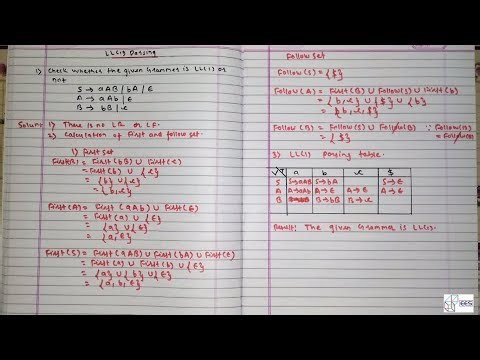 LL(1) Parsing
1) Check whether the given Grammar is LL(1) or
not
S → aAB | bA | ϵ
A → aAb | ϵ
B → bB | c
Solun: 1) There is no LR or LF.
2) Calculation of First and follow set.
1) First set
First(B) = First(bB) ∪ First(c)
= First(b) ∪ {c}
= {b} ∪ {c}
= {b,c}
First(A) = First(aAb) ∪ First(ϵ)
= First(a) ∪ {ϵ}
= {a} ∪ {ϵ}
= {a, ϵ}
First(S) = First(aAB) ∪ First(bA) ∪ First(ϵ)
= First(a) ∪ First(b) ∪ {ϵ}
= {a} ∪ {b} ∪ {ϵ}
= {a, b, ϵ}
Follow Set
Follow(S) = {$}
Follow(A) = First(B) ∪ Follow(S) ∪ First(b)
= {b,c} ∪ {$} ∪ {b}
= {b,c,$}
Follow(B) = Follow(S) ∪ Follow(B) ∵ Follow(B) = Follow(B)
= {$}
3) LL(1) Parsing table.
a b c $
S S→aAB S→bA S→ϵ
A A→aAb A→ϵ A→ϵ A→ϵ
B B→bB B→c
Result: The given Grammar is LL(1).